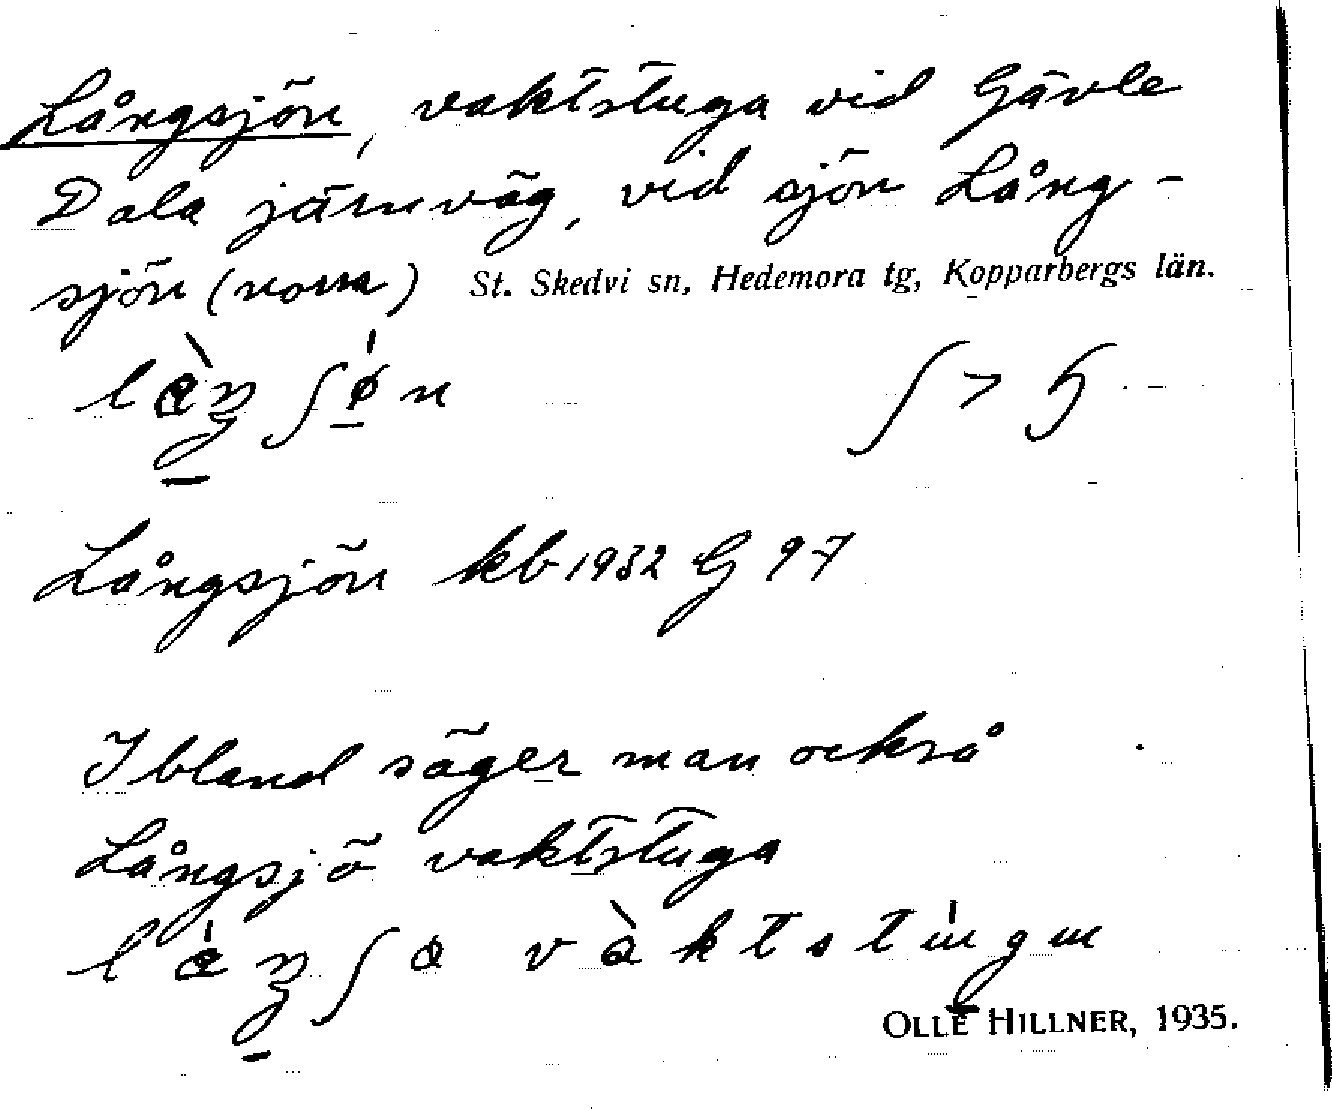 Långsjön, vaktstuga vid Gävle
Dala järnväg, vid sjön Lång-
sjön (norra) St. Skedvi sn, Hedemora tg, Kopparbergs län.
Långsjön kb 1932 G 97
Ibland säger man också
Långsjö vaktstuga
OLLE HILLNER, 1935.